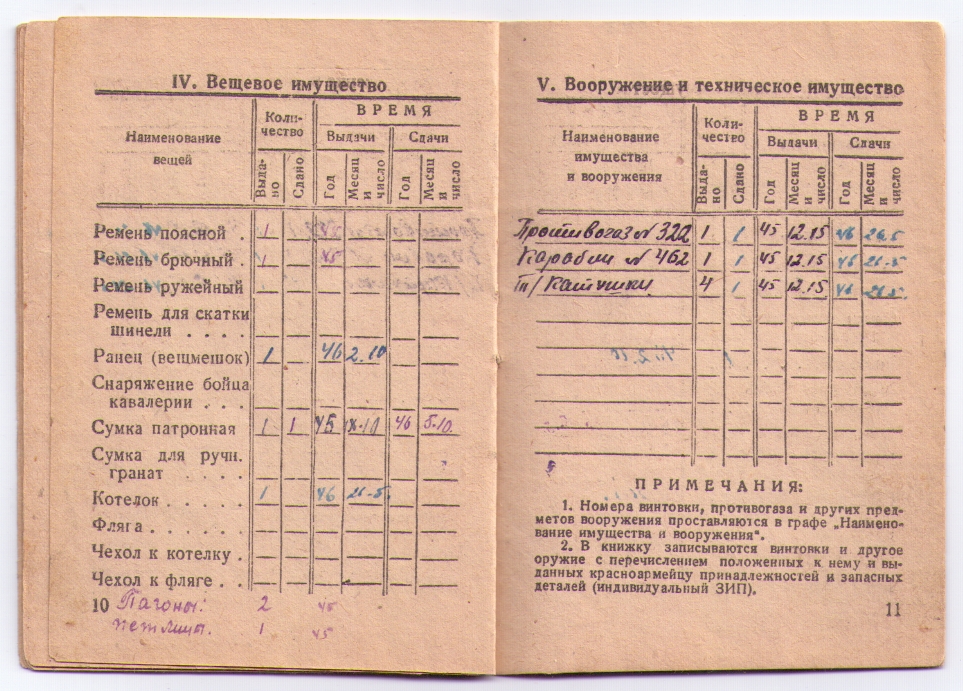 IV. Вещевое имущество
Наименование вещей
Коли-
чество
ВРЕМЯ
Выдачи
Сдачи
Выда-
но
Сдано
Год
Месяц и число
Год
Месяц и число
Ремень поясной . 1
Ремень брючный . 1 45
Ремень ружейный
Ремень для скатки
шинели . . . .
Ранец (вещмешок) 1 46 2.10
Снаряжение бойца
кавалерии . . .
Сумка патронная 1 1 45 IX-10 46 5-10.
Сумка для ручн.
гранат . . . .
Котелок . . . . . 1 46 26-5.
Фляга . . . . . .
Чехол к котелку .
Чехол к фляге . .
10 Пагоны: 2 45
петлицы. 1 45
V. Вооружение и техническое имущество
Наименование
имущества
и вооружения
Коли-
чество
ВРЕМЯ
Выдачи
Сдачи
Выда-
но
Сдано
Год
Месяц и число
Год
Месяц и число
Противогаз № 322 1 1 45 12.15 46 26.5
Карабин № 462 1 1 45 12.15 46 26.5
Тл/Катушки 4 1 45 12.15 46 26.5.
ПРИМЕЧАНИЯ:
1. Номера винтовки, противогаза и других пред-
метов вооружения проставляются в графе „Наимено-
вание имущества и вооружения".
2. В книжку записываются винтовки и другое
оружие с перечислением положенных к нему и вы-
данных красноармейцу принадлежностей и запасных
деталей (индивидуальный ЗИП).
11